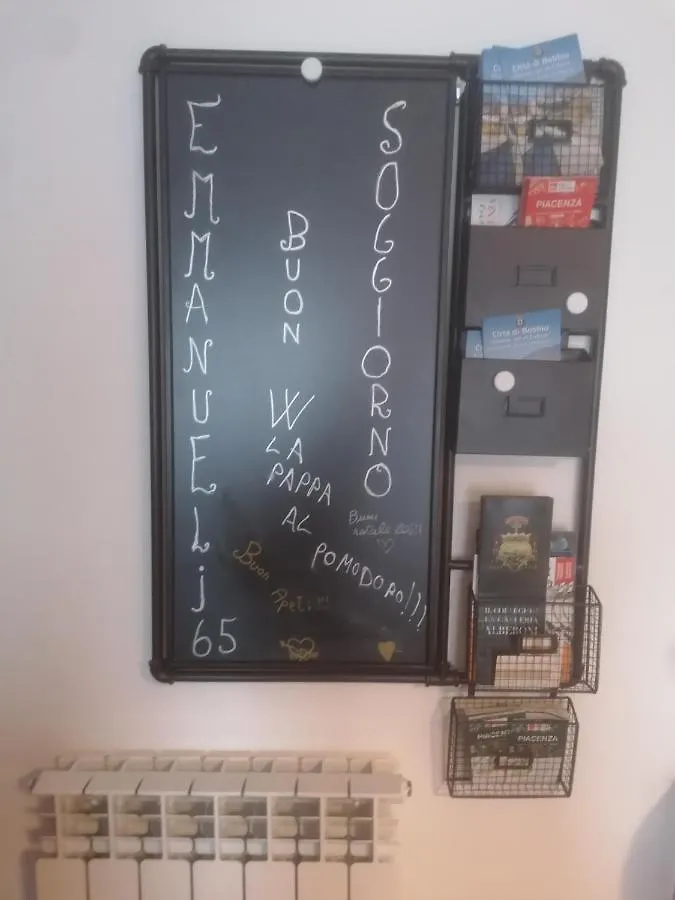 EMMANUELj
65
BUON
SOGGIORNO
W
LA
PAPPA
AL
POMODORO!!!
Buon
natale
Buon
Città di Bobbio
PIACENZA
Città di Bobbio
IL COLLEGIO
E LA GALLERIA
ALBERONI
PIACENZA
PIACENZA